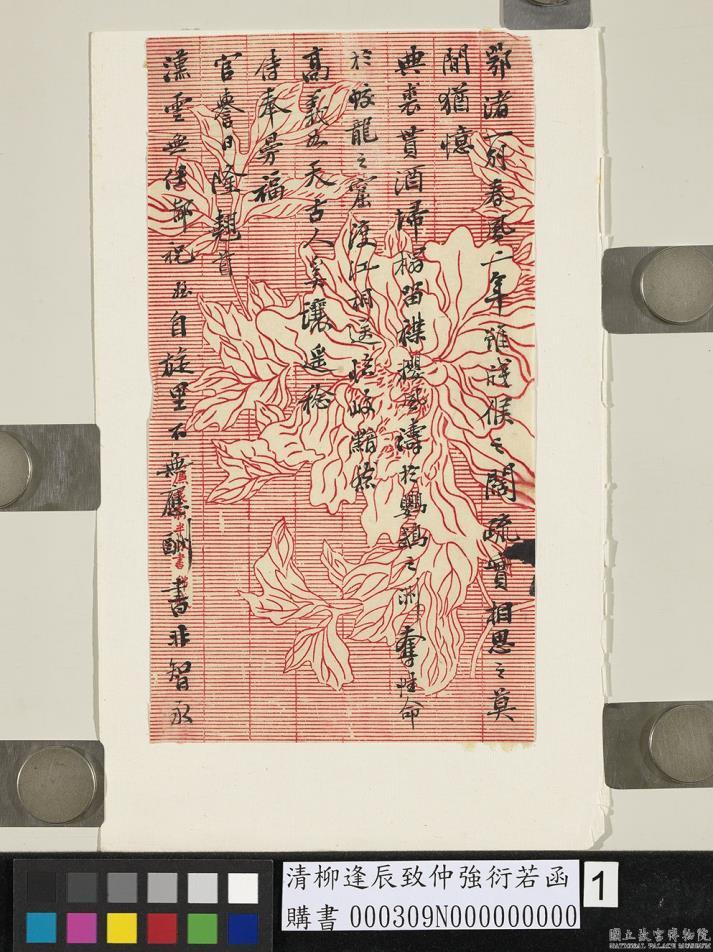 鄂渚一別春風二年雖牋候之闊疏實相思之莫
間猶憶
典裘貰酒掃榻留襟攖風濤於鸚鵡之洲奪性命
於蛟龍之窟渡江相送臨岐黯然
高義如天古人奚讓遙稔
侍奉曼福
官譽日隆翹首
漢雲無任鄰祝 自旋里不無應酬書非智永
清柳逢辰致仲強衍若函
購書 000309N000000000
1
國立故宮博物院
NATIONAL PALACE MUSEUM